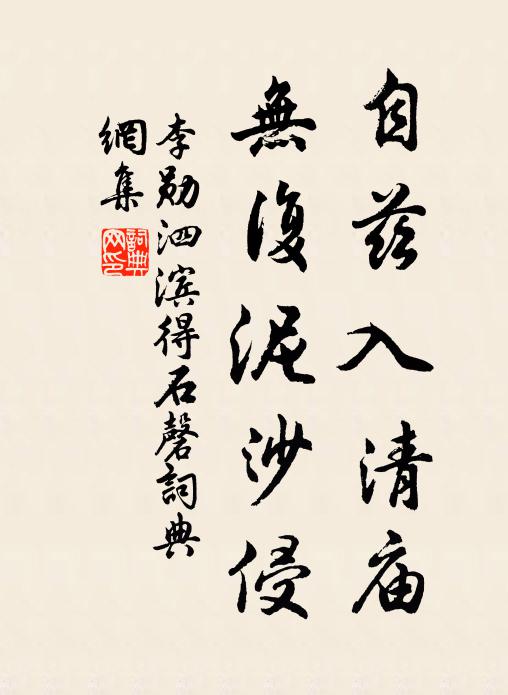 自兹入清庙
無復泥沙侵
李勋泗滨得石磬詞典
網集
詞典
网印